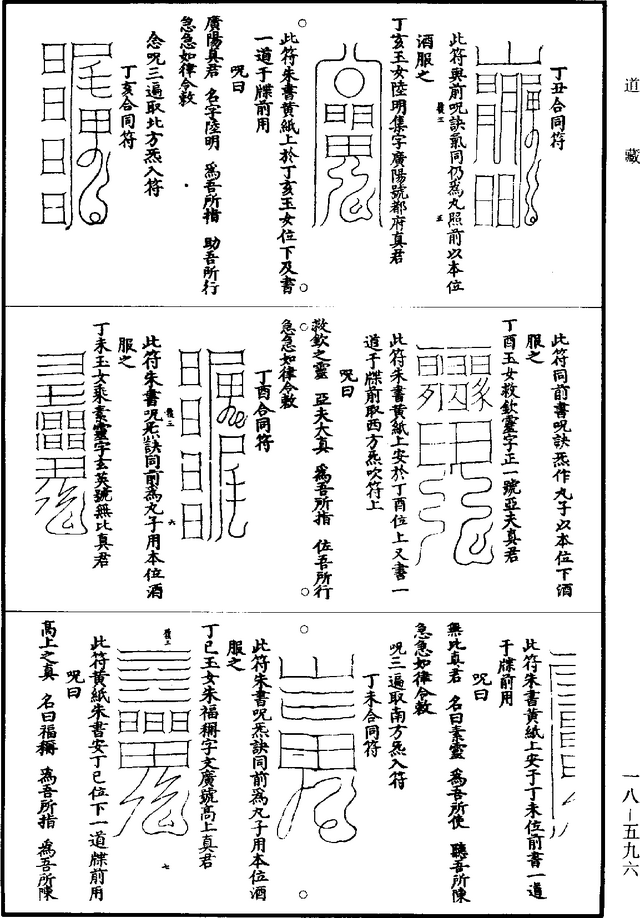 道藏
丁丑合同符
此符與前呪訣氣同仍爲丸照前以本位
酒服之
丁亥玉女陸明集字廣陽號都府真君
此符朱書黃紙上於丁亥玉女位下及書
一道于牒前用
呪曰
廣陽真君 名字陸明 爲吾所指 助吾所行
急急如律令敕
念呪三遍取北方炁入符
丁亥合同符
此符同前書呪訣炁作丸子以本位下酒
服之
丁酉玉女救欽靈字正一號亞夫真君
此符朱書黃紙上安於丁酉位上又書一
道于牒前取西方炁吹符上
呪曰
救欽之靈 亞夫大真 爲吾所指 佐吾所行
急急如律令敕
丁酉合同符
此符朱書呪炁訣同前爲丸子用本位酒
服之
丁未玉女乘素靈字玄英號無比真君
此符朱書黃紙上安于丁未位前書一道
于牒前用
呪曰
無比真君 名曰素靈 爲吾所使 聽吾所陳
急急如律令敕
呪三遍取南方炁入符
丁未合同符
此符朱書呪炁訣同前爲丸子用本位酒
服之
丁巳玉女朱福稱字文廣號高上真君
此符黃紙朱書安丁巳位下一道牒前用
呪曰
高上之真 名曰福稱 爲吾所指 爲吾所陳
一八－五九六